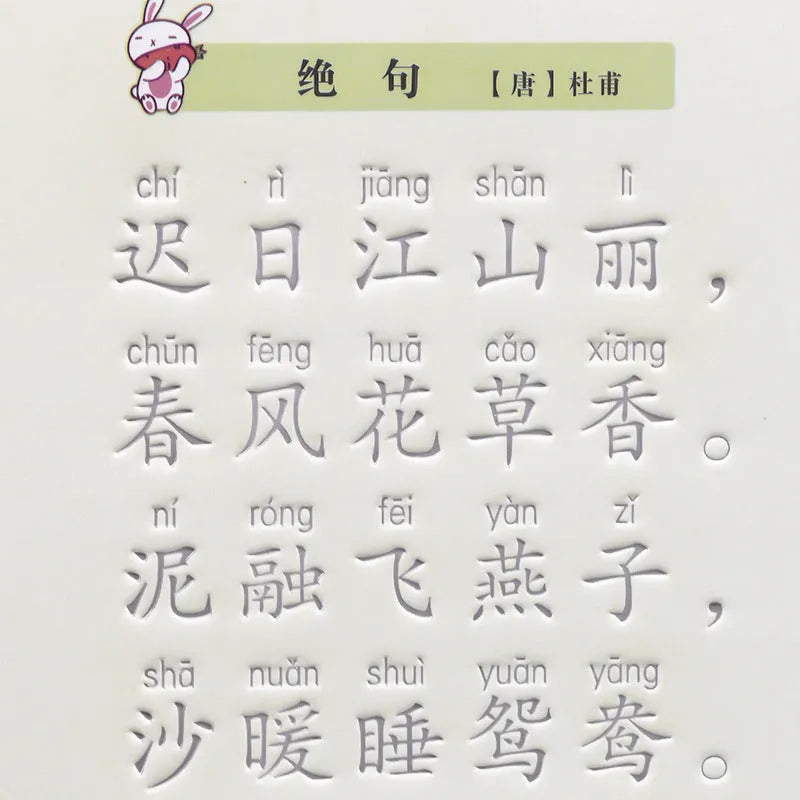 绝句 【唐】杜甫
chí rì jiāng shān lì
迟日江山丽，
chūn fēng huā cǎo xiāng
春风花草香。
ní róng fēi yàn zǐ
泥融飞燕子，
shā nuǎn shuì yuān yāng
沙暖睡鸳鸯。